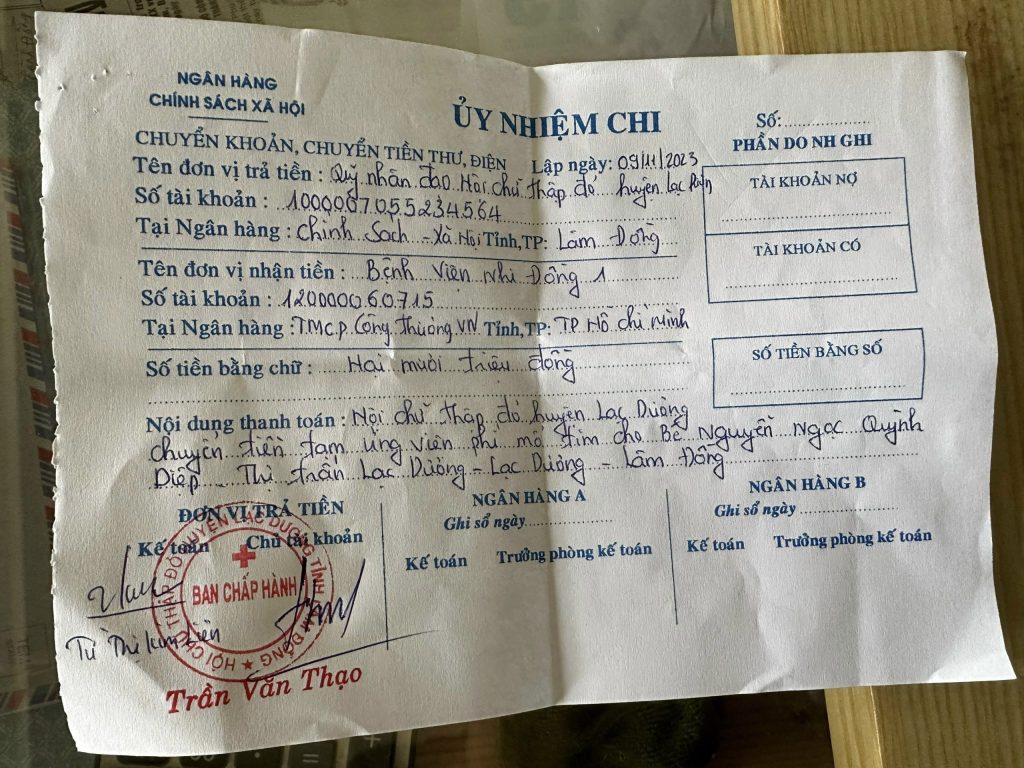 NGÂN HÀNG
CHÍNH SÁCH XÃ HỘI
ỦY NHIỆM CHI
Số:....................
CHUYỂN KHOẢN, CHUYỂN TIỀN THƯ, ĐIỆN
Lập ngày: 09/11/2023
PHẦN DO NH GHI
Tên đơn vị trả tiền : Quỹ nhân đạo Hội chữ thập đỏ huyện Lạc
Số tài khoản : 1000007055234564
Tại Ngân hàng : Chính Sách - Xã Nội Tỉnh,TP: Lâm Đồng
TÀI KHOẢN NỢ
TÀI KHOẢN CÓ
Tên đơn vị nhận tiền : Bệnh viện nhi Đồng 1
Số tài khoản : 120000060715
Tại Ngân hàng : TMCP Công thương VN Tỉnh,TP: TP Hồ chí minh
Số tiền bằng chữ : Hai mươi triệu đồng
SỐ TIỀN BẰNG SỐ
Nội dung thanh toán : Nội chữ thập đỏ huyện Lạc Dương
chuyển tiền tạm ứng viện phí mổ tim cho Bé Nguyễn Ngọc Quỳnh
Diệp - Thị trấn Lạc Dương - Lạc Dương - Lâm Đồng
ĐƠN VỊ TRẢ TIỀN
Kế toán Chủ tài khoản
NGÂN HÀNG A
Ghi sổ ngày....................
Kế toán Trưởng phòng kế toán
NGÂN HÀNG B
Ghi sổ ngày ....................
Kế toán Trưởng phòng kế toán
HỘI CHỮ THẬP ĐỎ HUYỆN LẠC DƯƠNG TỈNH LÂM ĐỒNG
BAN CHẤP HÀNH
Từ Thị Kim Liên
Trần Văn Thạo